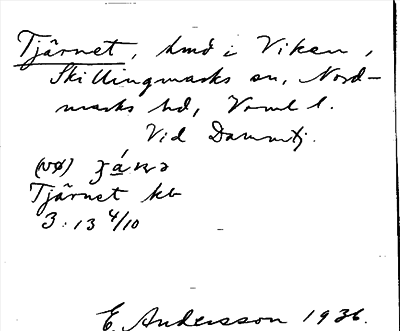 Tjärnet, hmd i Viken,
Skillingmarks sn, Nord-
marks hd, Vrml l.
Vid Dammtj.
(VØ)
Tjärnet kb
3:13 4/10
E. Andersson 1936.